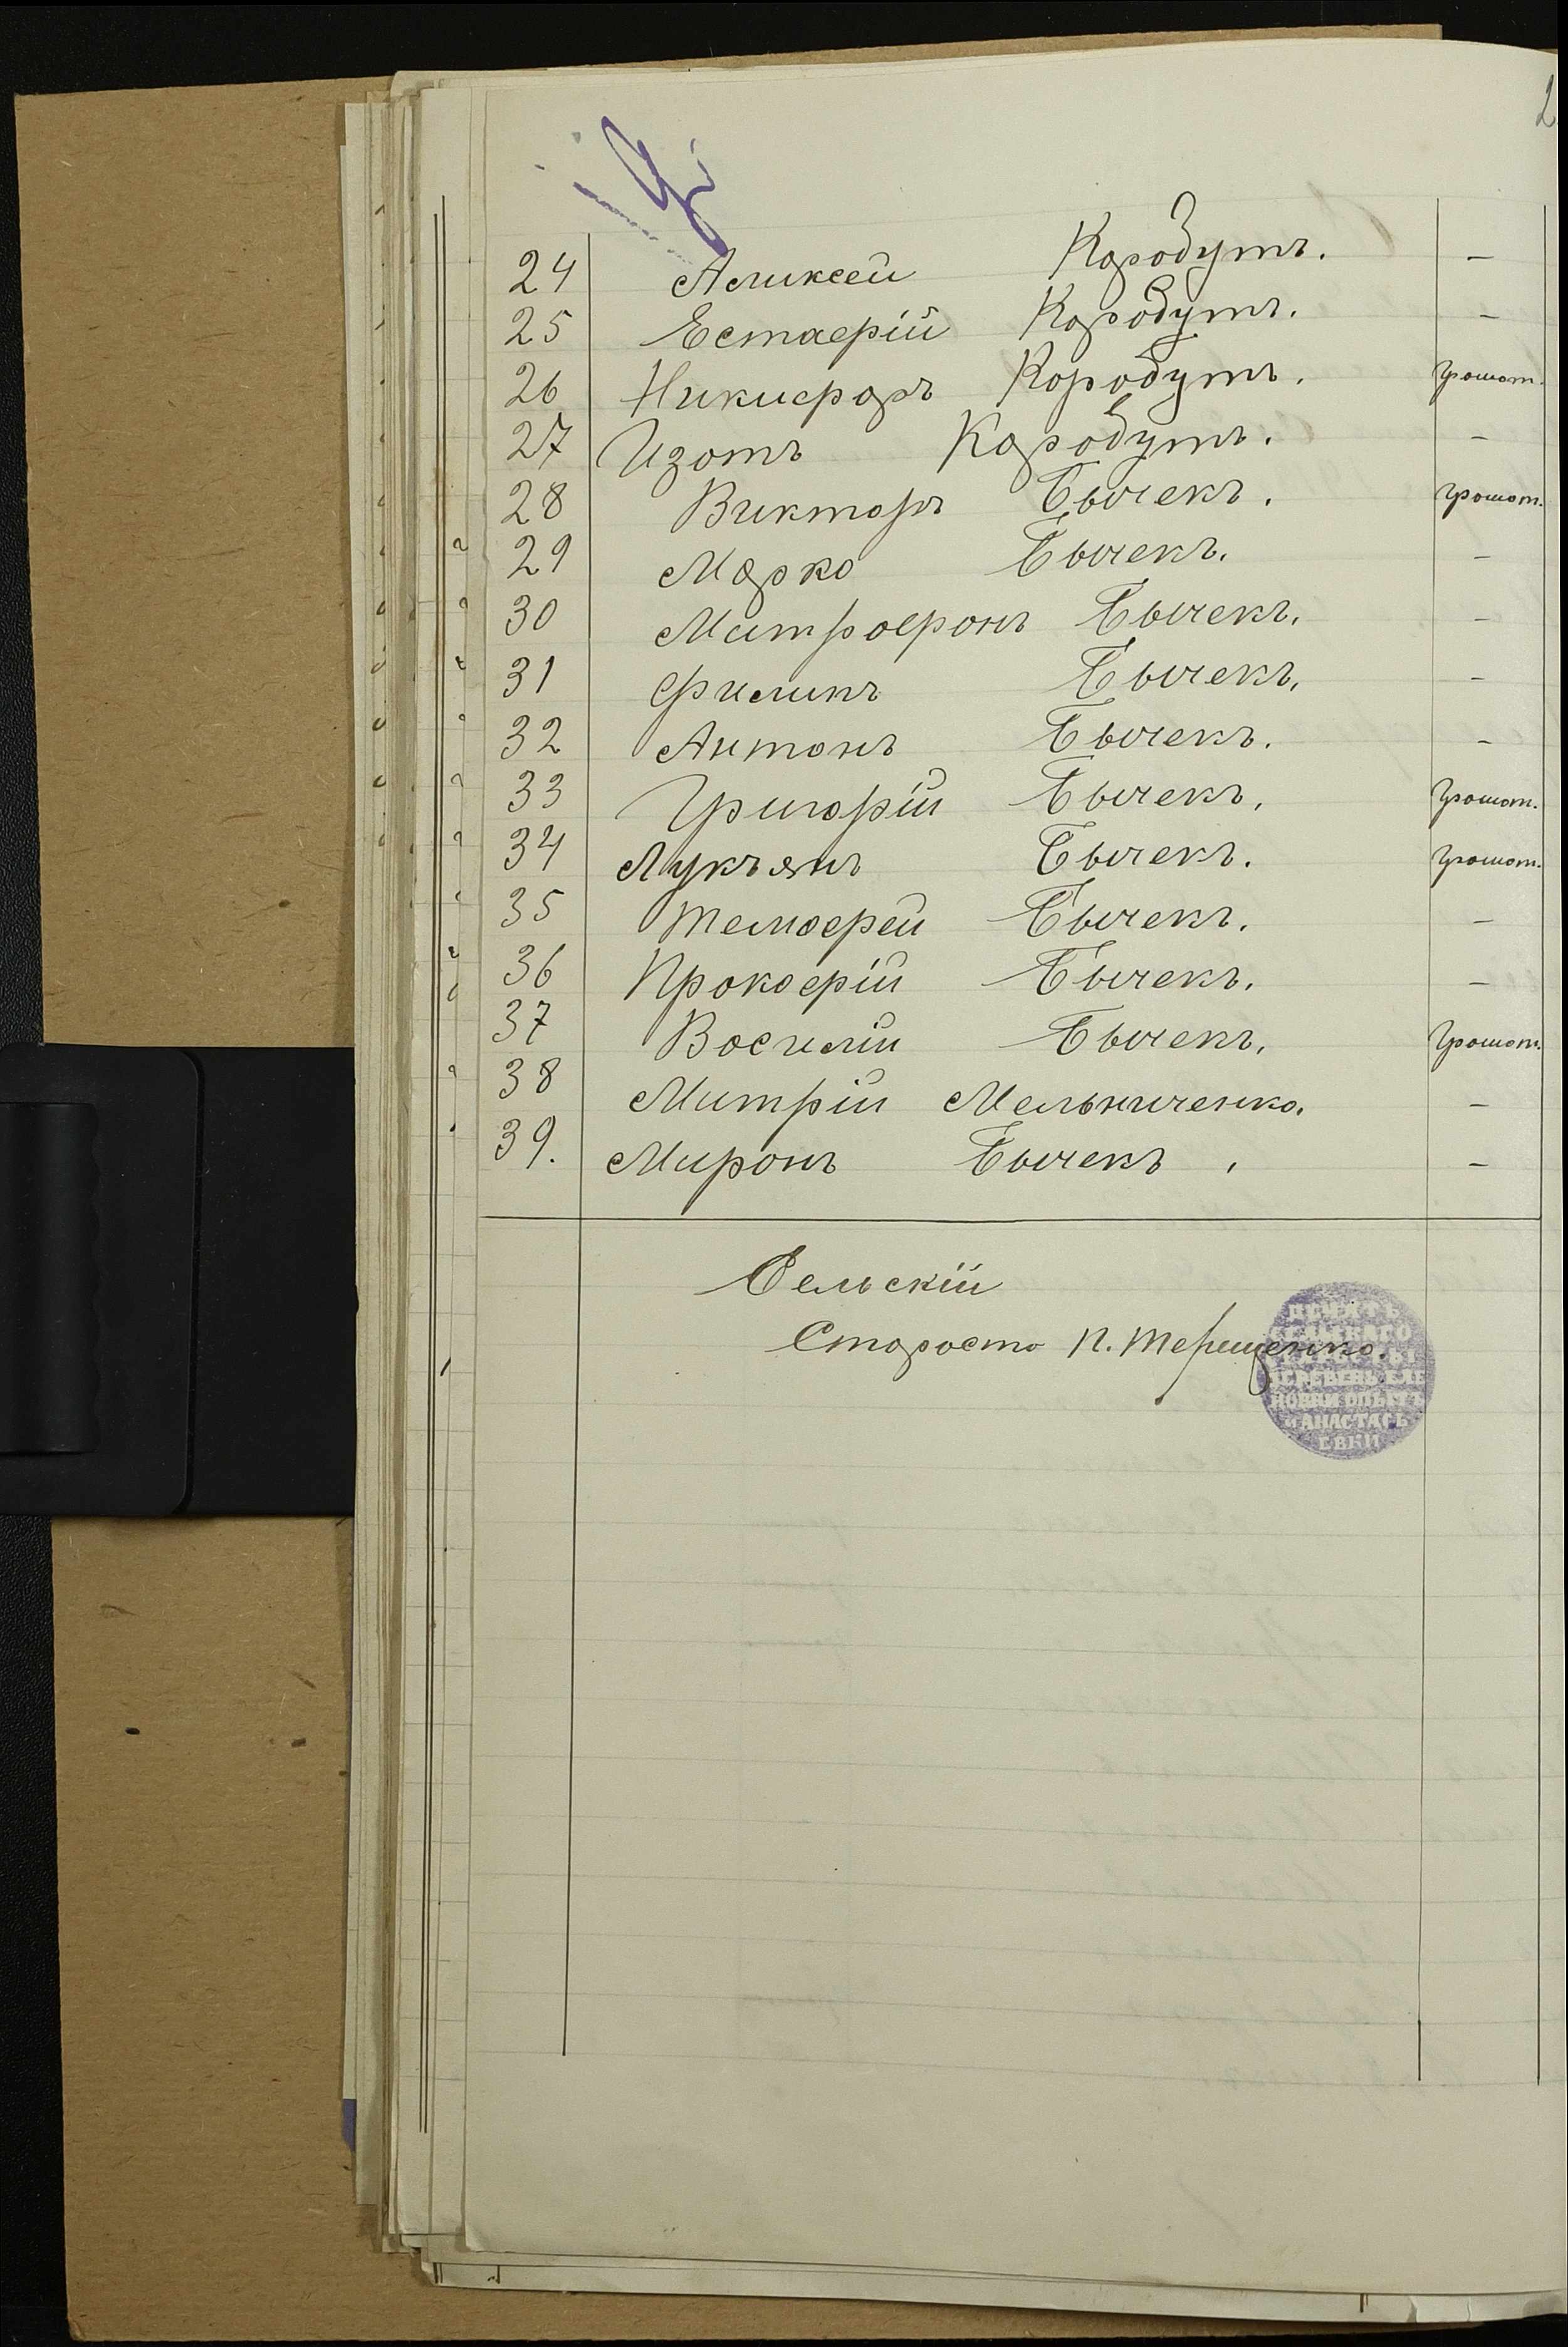 24 Аликсей Коробутъ. –
25 Естафій Коробутъ. –
26 Никифоръ Коробутъ. грамот.
27 Изотъ Коробутъ. –
28 Викторъ Бычекъ. грамот.
29 Марко Бычекъ. –
30 Митрофонъ Бычекъ. –
31 Филипъ Бычекъ. –
32 Антонъ Бычекъ. –
33 Григорій Бычекъ. грамот.
34 Лукъянъ Бычекъ. грамот.
35 Темофей Бычекъ. –
36 Прокофій Бычекъ. –
37 Василій Бычекъ. грамот.
38 Митрій Мельниченко. –
39. Миронъ Бычекъ. –
Сельскій
Староста П. Терещенко.
ПЕЧАТЬ
СЕЛЬСКАГО
ДЕРЕВЕНЬ ЕЛЕ
НОВКИ
И АНАСТАСЬ
ЕВКИ